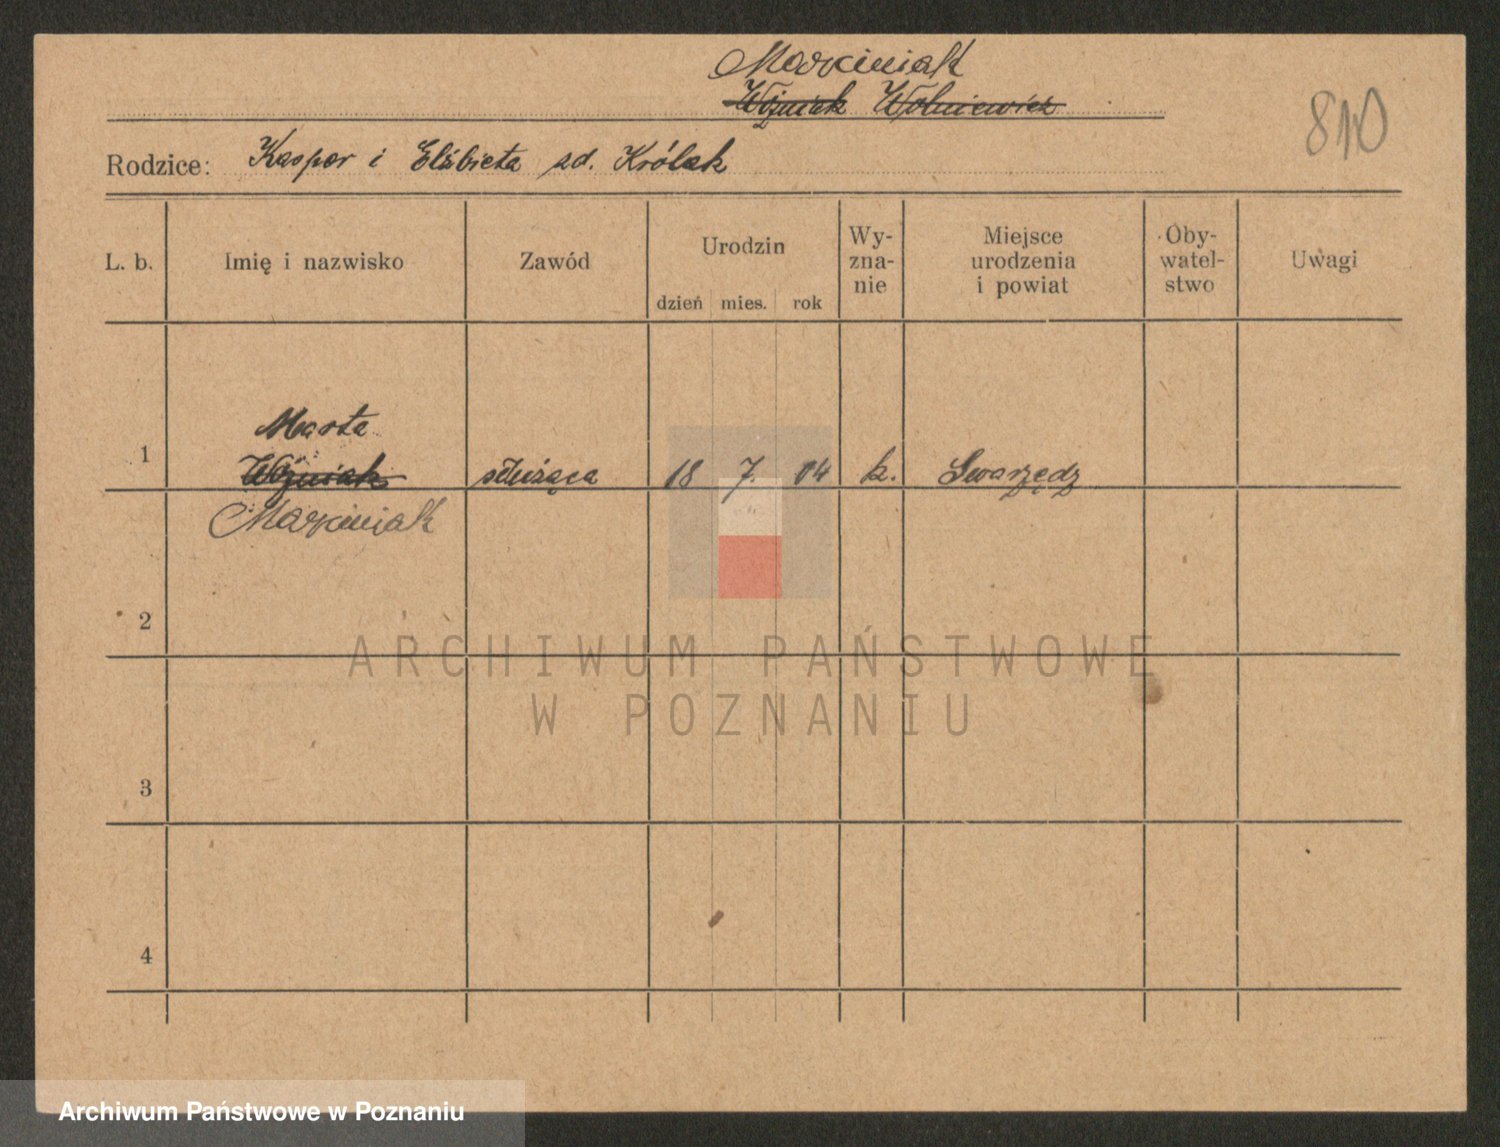 Marciniak
Woźniak Wolniewicz
810
Rodzice: Kasper i Elżbieta zd. Królak
L. b.
Imię i nazwisko
Zawód
Urodzin
dzień mies. rok
Wy-
zna-
nie
Miejsce
urodzenia
i powiat
Oby-
watel-
stwo
Uwagi
1
Marta
Woźniak
służąca
18 7. 04
k.
Swarzędz
Marciniak
2
3
4
ARCHIWUM PAŃSTWOWE
W POZNANIU
Archiwum Państwowe w Poznaniu